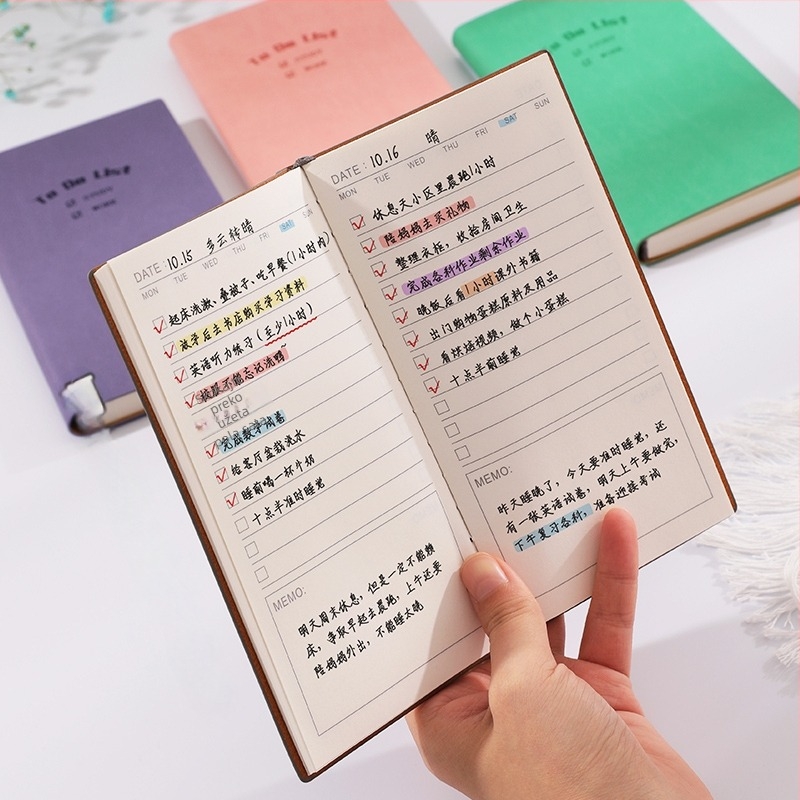 To Do List
To Do List
To Do List
DATE: 10.15 多云转晴
MON TUE WED THU FRI SAT SUN
起床洗漱、叠被子、吃早餐(1小时内)
放学后去书店购买学习资料
英语听力练习(至少1小时)
不能忘记洗鸭~
preko
užeta
完成数学试卷
给客厅盆栽浇水
睡前喝一杯牛奶
十点半准时睡觉
MEMO:
明天周末休息，但是一定不能赖
床，争取早起去晨跑，上午还要
陪妈妈外出，不能睡太晚
DATE: 10.16 晴
MON TUE WED THU FRI SAT SUN
休息天小区里晨跑1小时
陪妈妈去买礼物
整理衣柜，收拾房间卫生
完成各科作业剩余作业
晚饭后看1小时课外书籍
出门购物蛋糕原料及用品
看烘焙视频，做个小蛋糕
十点半前睡觉
MEMO:
昨天睡晚了，今天要准时睡觉，还
有一张英语试卷，明天上午要做完，
下午复习各科，准备迎接考试